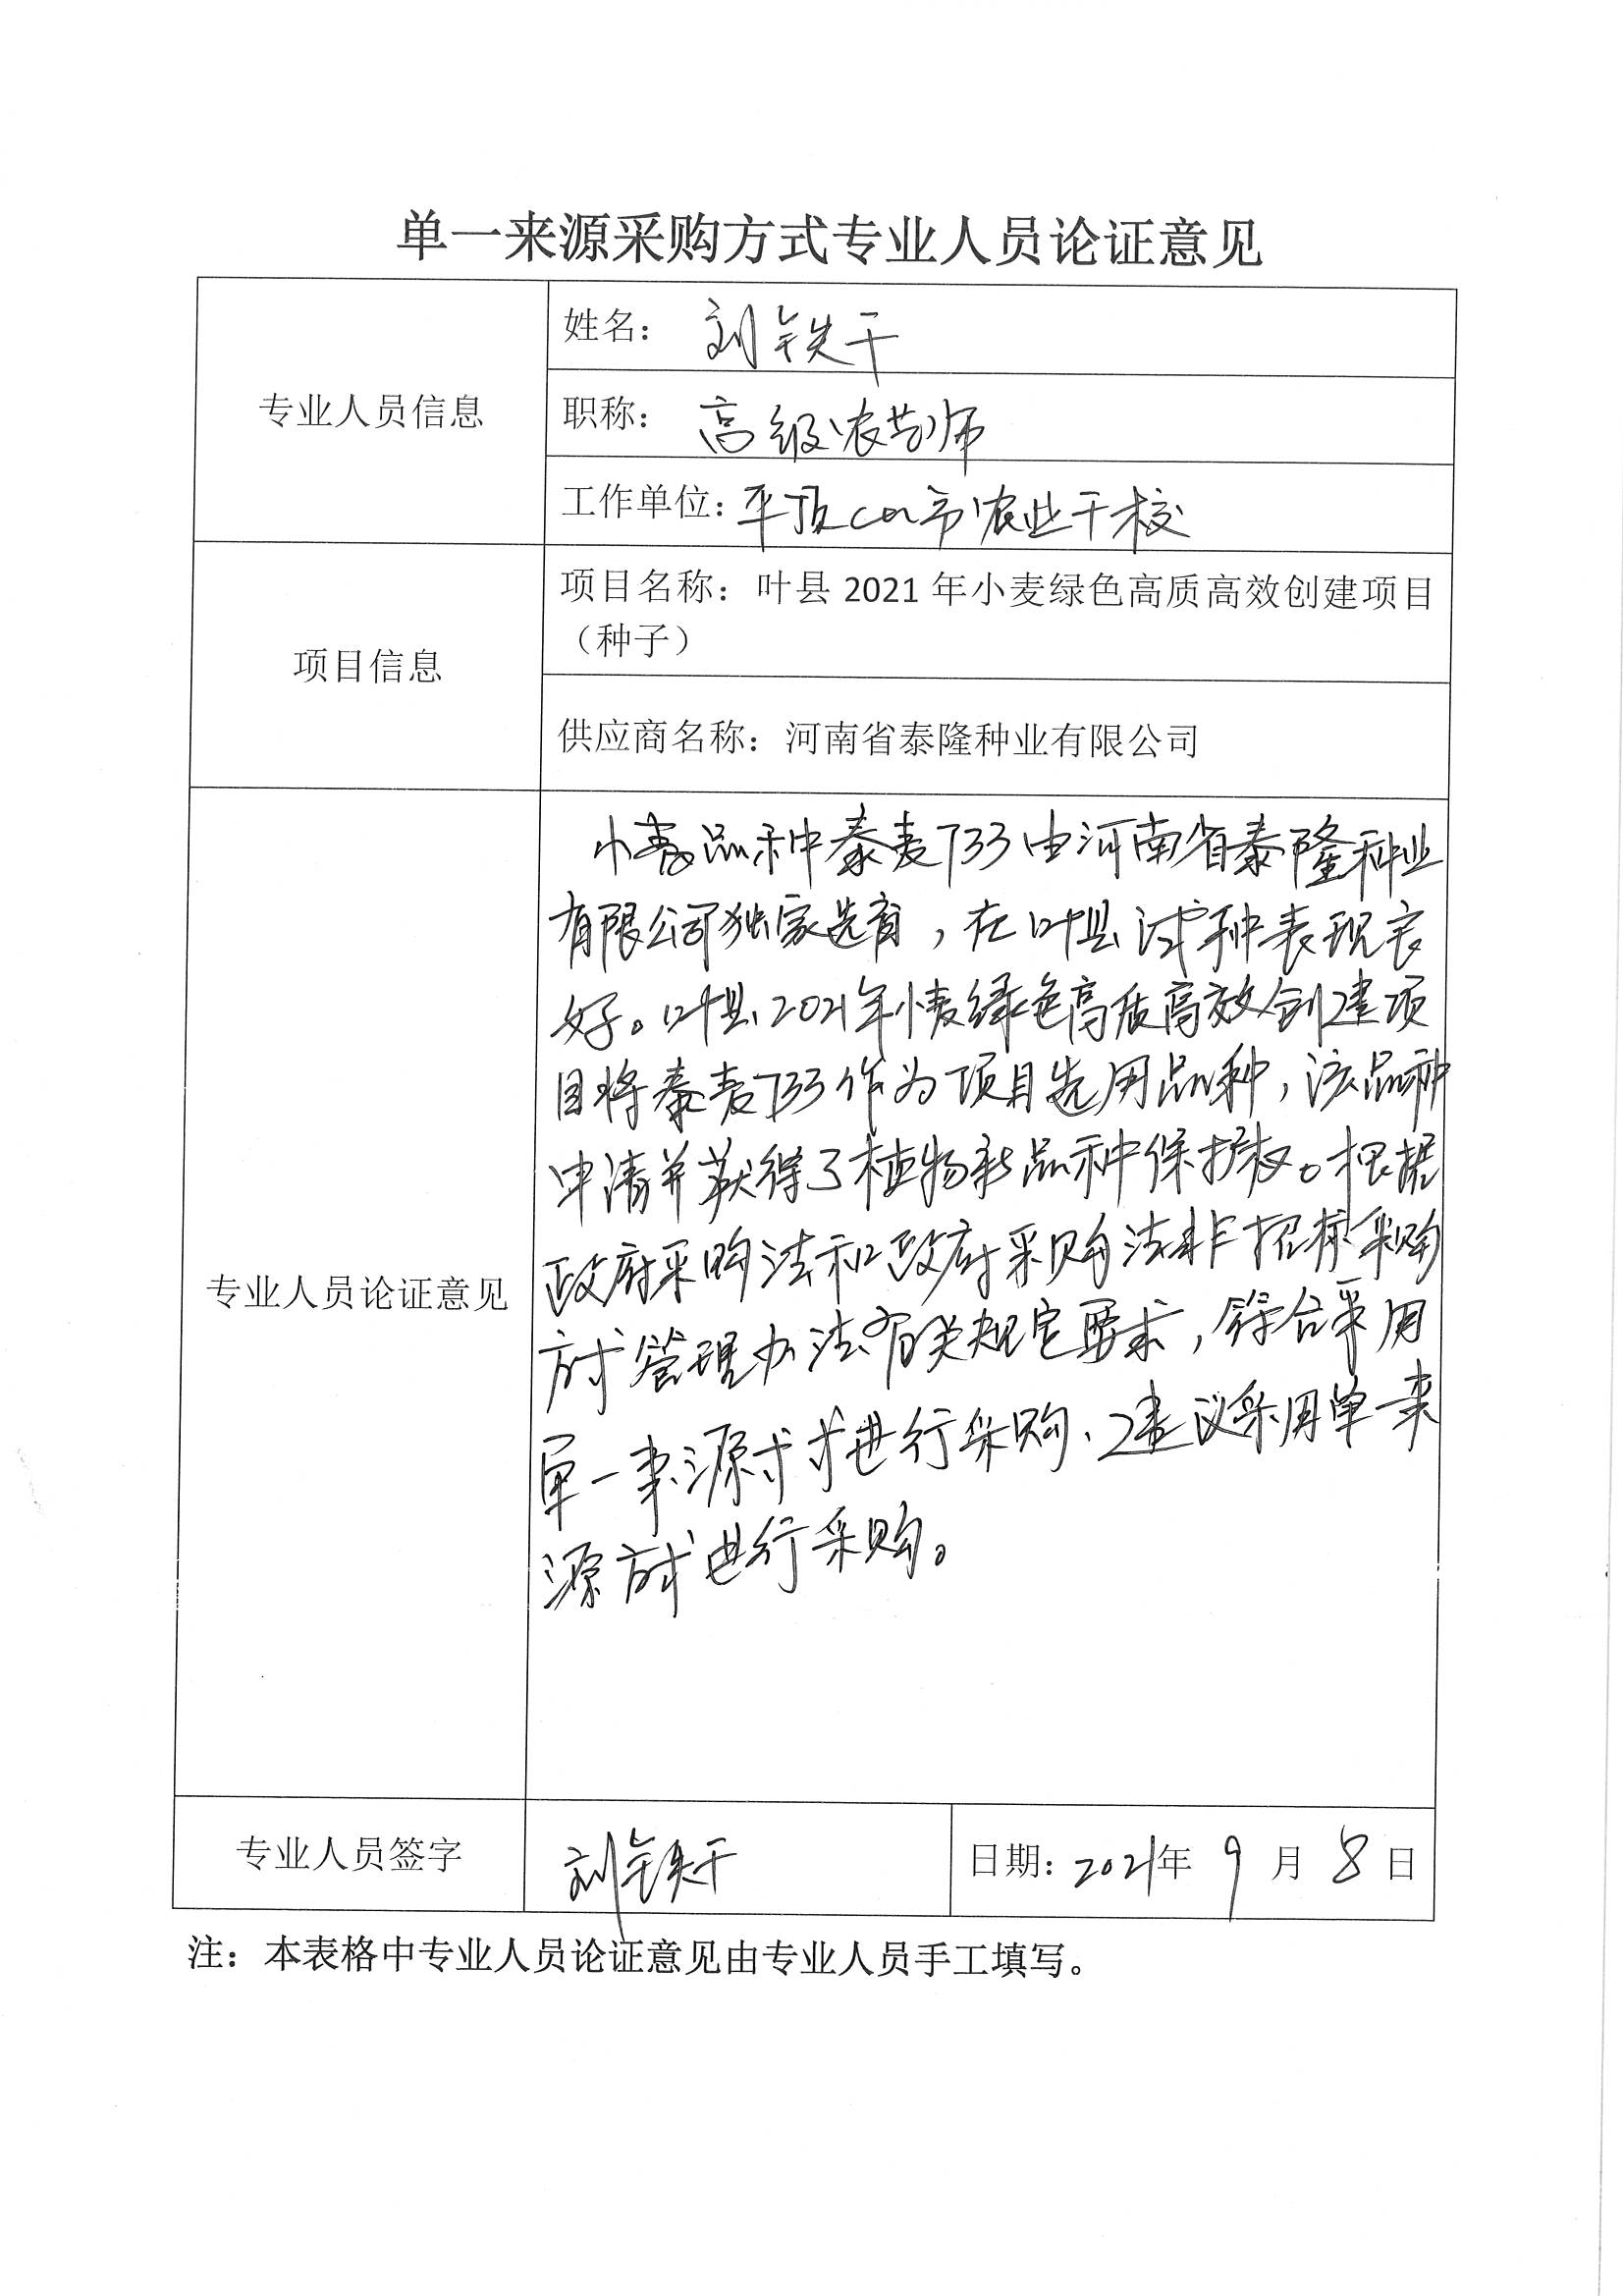 单一来源采购方式专业人员论证意见
专业人员信息
姓名：刘铁干
职称：高级农艺师
工作单位：平顶山市农业干校
项目信息
项目名称：叶县 2021 年小麦绿色高质高效创建项目
（种子）
供应商名称：河南省泰隆种业有限公司
专业人员论证意见
小麦品种泰麦733由河南省泰隆种业
有限公司独家选育，在叶县试种表现良
好。叶县2021年小麦绿色高质高效创建项
目将泰麦733作为项目选用品种，该品种
申请并获得了植物新品种保护权。根据
政府采购法和政府采购法非招标采购
方式管理办法有关规定要求，符合采用
单一来源方式进行采购、建议采用单一来
源方式进行采购。
专业人员签字
刘铁干
日期：2021年 9 月 8 日
注：本表格中专业人员论证意见由专业人员手工填写。